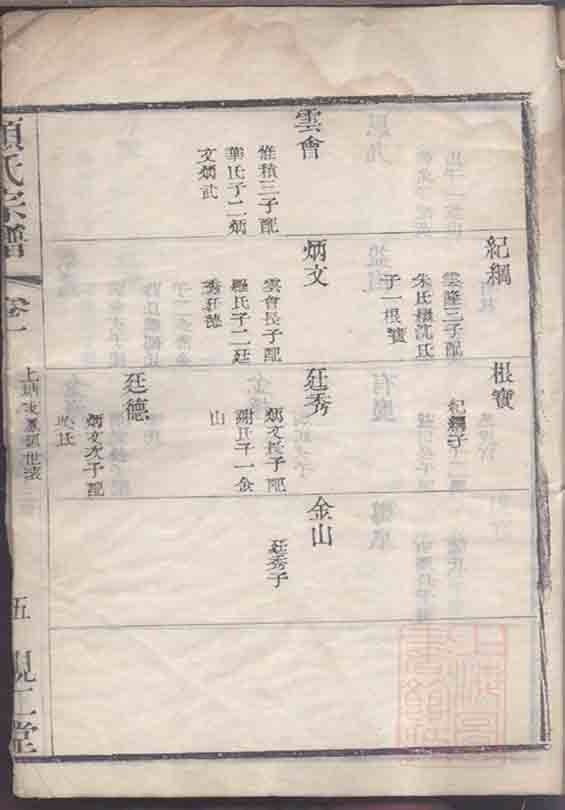 雲會
惟積三子配
華氏子二炳
文炳武
紀綱
雲隆三子配
朱氏繼沈氏
子一根寶
炳文
雲會長子配
子二廷
秀廷德
根寶
紀綱子
廷秀
炳文長子配
謝氏子一金
山
廷德
炳文次子配
氏
金山
廷秀子
項氏宗譜
卷一
上
世表
五
堂